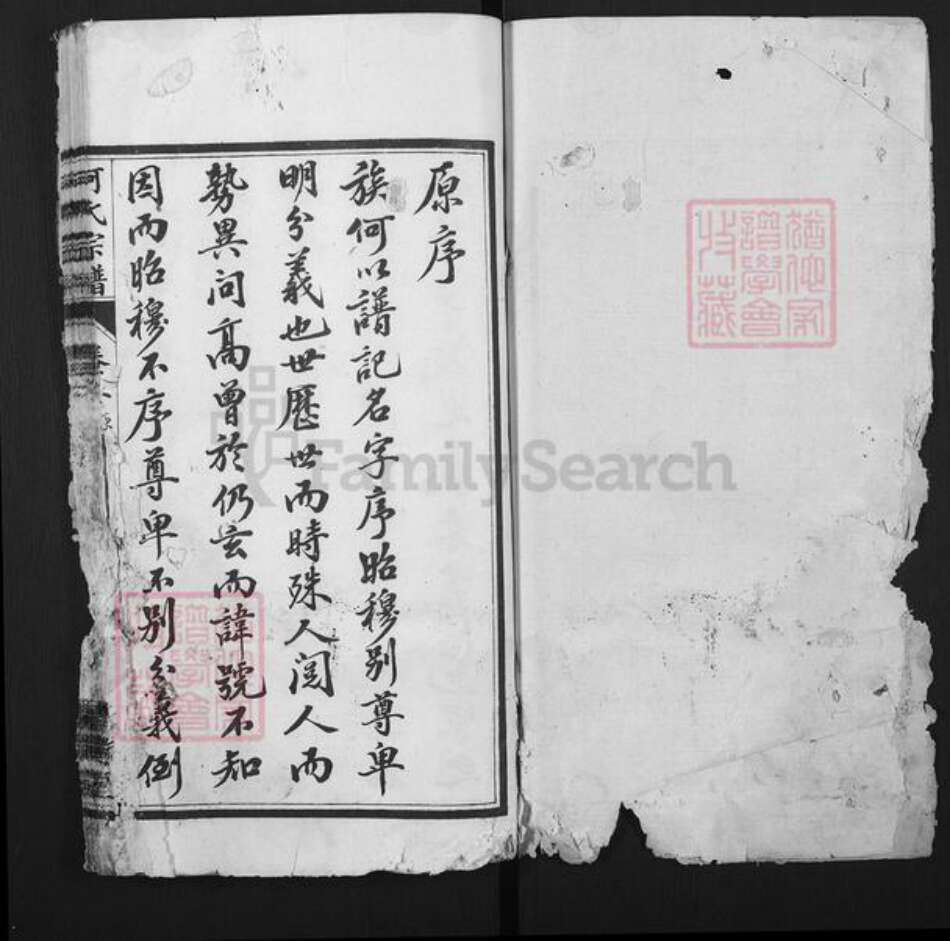 原序
族何以譜記名字序昭穆別尊卑
明分義也世歷世而時殊人閱人而
勢異問高曾於仍玄而諱號不知
因而昭穆不序尊卑不別分義倒
何氏宗譜
卷
譜學會
收藏
FamilySearch